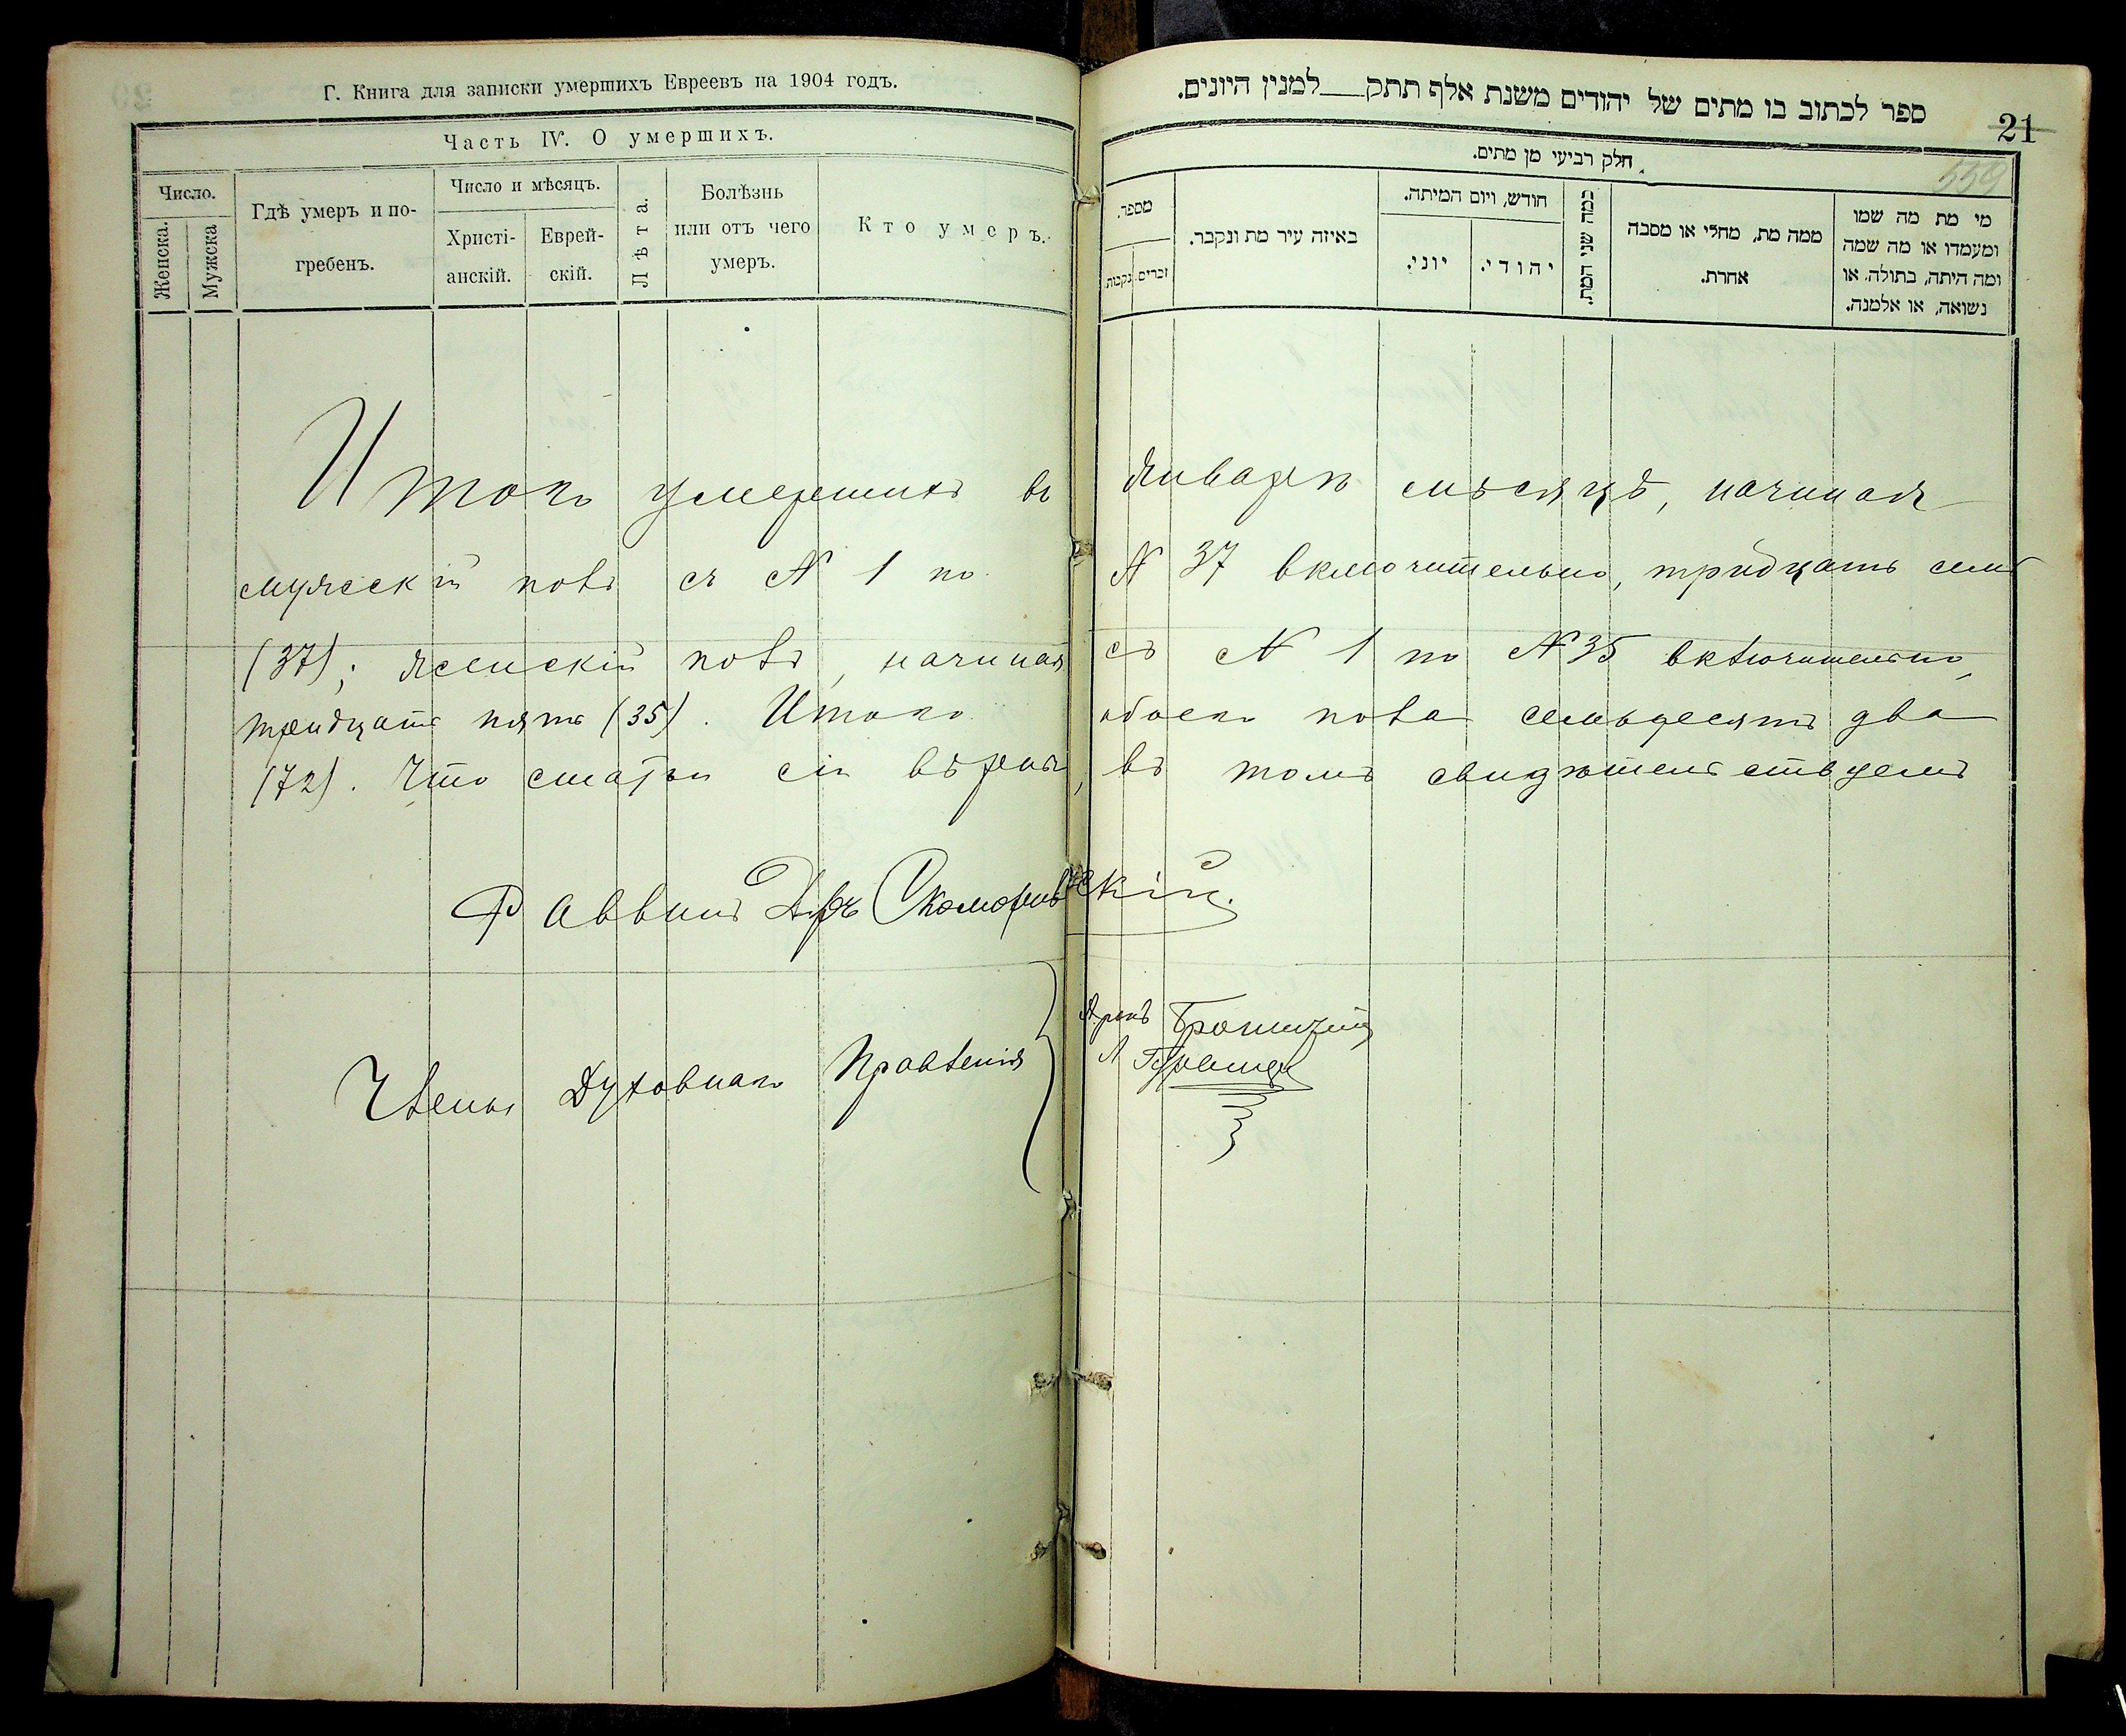 Г. Книга для записки умершихъ Евреевъ на 1904 годъ.
Часть IV. О умершихъ.
Число.
Женска.
Мужска
Гдѣ умеръ и по-
гребенъ.
Число и мѣсяцъ.
Христі-
анскій.
Еврей-
скій.
Лѣта.
Болѣзнь
или отъ чего
умеръ.
Кто умеръ.
ספר לכתוב בו מתים של יהודים משנת אלף תתק למנין היונים.
21
559
חלק רביעי מן מתים.
מספר.
זכרים.
נקבות.
באיזה עיר מת ונקבר.
חודש, ויום המיתה.
יוני.
יהודי.
כמה שני המת.
ממה מת, מחלי או מסבה
אחרת.
מי מת מה שמו
ומעמדו או מה שמה
ומה היתה, בתולה, או
נשואה, או אלמנה.
Итого умершихъ въ январѣ мѣсяцѣ, начиная
мужескій полъ съ N 1 по N 37 включительно, тридцать семь
(37); женскій полъ, начиная съ N 1 по N 35 включительно,
тридцать пять (35). Итого обоего пола семьдесятъ два
(72). Что статьи сіи вѣрны, въ томъ свидѣтельствуемъ
Раввинъ Д-ръ Скоморовскій.
Члены Духовнаго Правленія